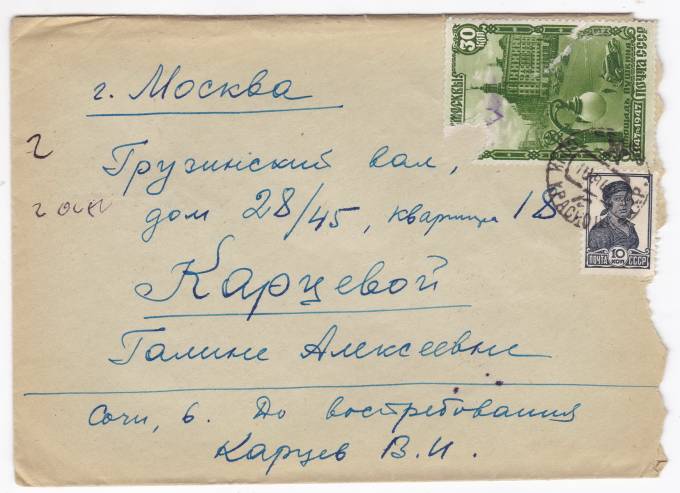 г. Москва
Грузинский вал,
дом 28/45, квартира 18
Карцевой
Галине Алексеевне
Сочи, 6. До востребования
Карцев В.И.
30 КОП
МОСКВЫ
ПЛОЩАДЬ ПУШКИНА
1147-1947
ПОЧТА СССР
ПОЧТА 10 КОП СССР